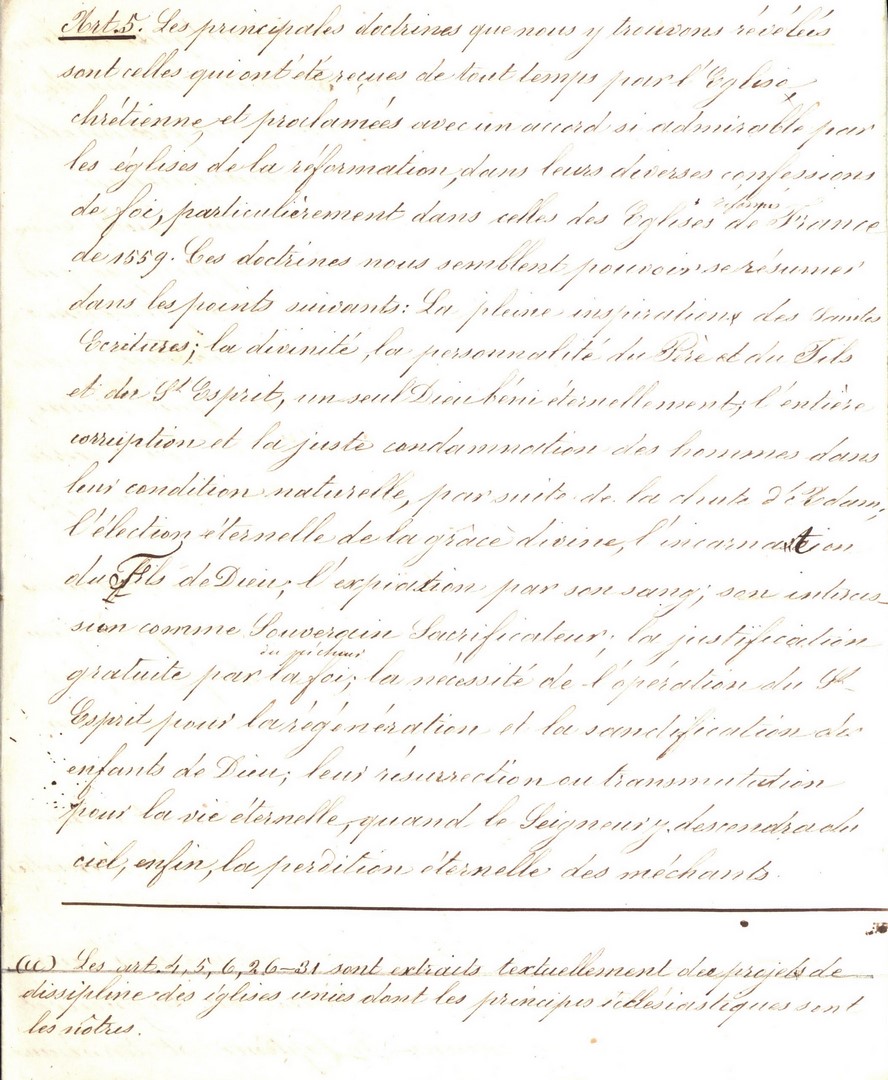 Art. 5. Les principales doctrines que nous y trouvons révélées
sont celles qui ont été reçues de tout temps par l'Eglise
chrétienne, et proclamées avec un accord si admirable par
les églises de la réformation, dans leurs diverses confessions
de foi, particulièrement dans celles des Eglises réformées de France
de 1559. Ces doctrines nous semblent pouvoir se résumer
dans les points suivants: La pleine inspiration des Saintes
Ecritures; la divinité, la personnalité du Père et du Fils
et du St Esprit, un seul Dieu béni éternellement; l'entière
corruption et la juste condamnation des hommes dans
leur condition naturelle, par suite de la chute d'Adam;
l'élection éternelle de la grâce divine, l'incarnation
du Fils de Dieu; l'expiation par son sang; son interces-
sion comme Souverain Sacrificateur; la justification
du pécheur
gratuite par la foi; la nécessité de l'opération du St
Esprit pour la régénération et la sanctification des
enfants de Dieu; leur résurrection ou transmutation
pour la vie éternelle, quand le Seigneur descendra du
ciel, enfin, la perdition éternelle des méchants.
Les art. 4, 5, 6, 26-31 sont extraits textuellement des projets de
dissipline des églises unies dont les principes écclésiastiques sont
les nôtres.